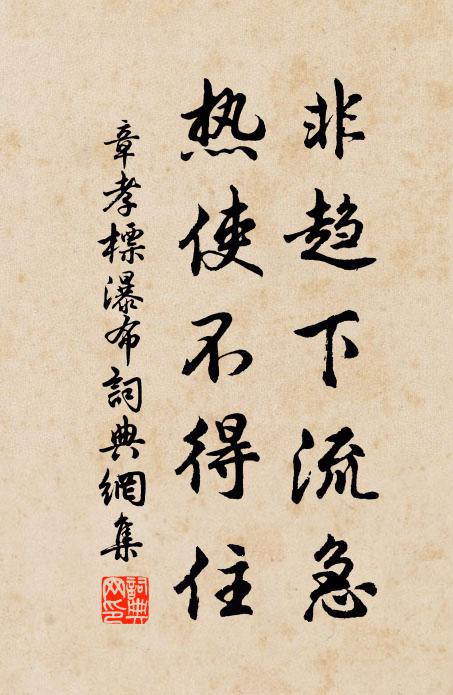 非趋下流急
热使不得住
章孝標瀑布詞典網集
詞典网印